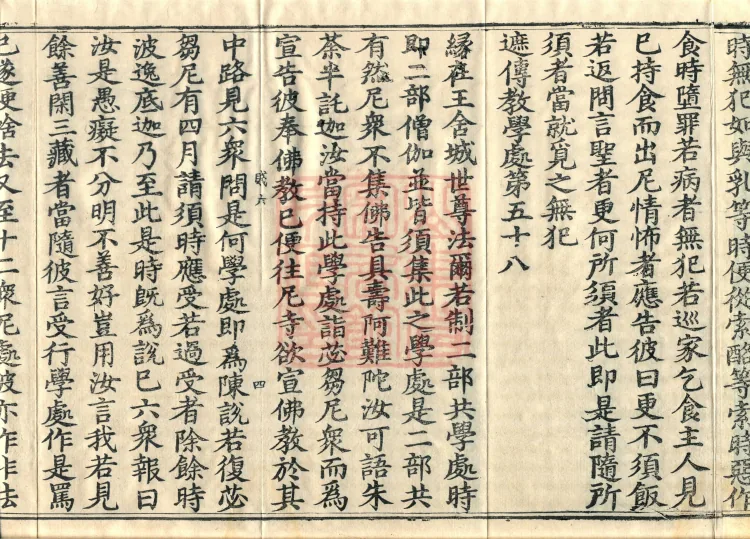 時無犯如與乳等時便從索酪等索時惡作
食時墮罪若病者無犯若巡家乞食主人見
已持食而出尼情怖者應告彼曰更不須飯
若返問言聖者更何所須者此即是請隨所
須者當就覓之無犯
遮傳教學處第五十八
緣在王舍城世尊法爾若制二部共學處時
即二部僧伽並皆須集此之學處是二部共
有然尼衆不集佛告具壽阿難陀汝可語朱
荼半託迦汝當持此學處詣苾芻尼衆而爲
宣告彼奉佛教已便往尼寺欲宣佛教於其
四
中路見六衆問是何學處即爲陳說若復苾
芻尼有四月請須時應受若過受者除餘時
波逸底迦乃至此是時既爲說已六衆報曰
汝是愚癡不分明不善好豈用汝言我若見
餘善閑三藏者當隨彼言受行學處作是罵
已遂更捨去又至十二衆尼處彼亦作作法